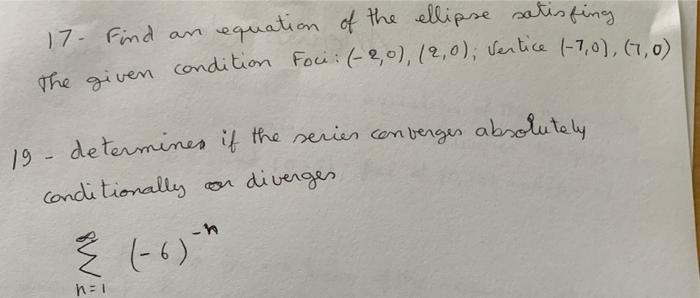 17- Find an equation of the ellipse satisfing
the given condition Foci: (-2,0), (2,0); Vertice (-7,0), (7,0)
19 - determines if the series converges absolutely
conditionally or diverges
∞
Σ (-6)^-n
n=1